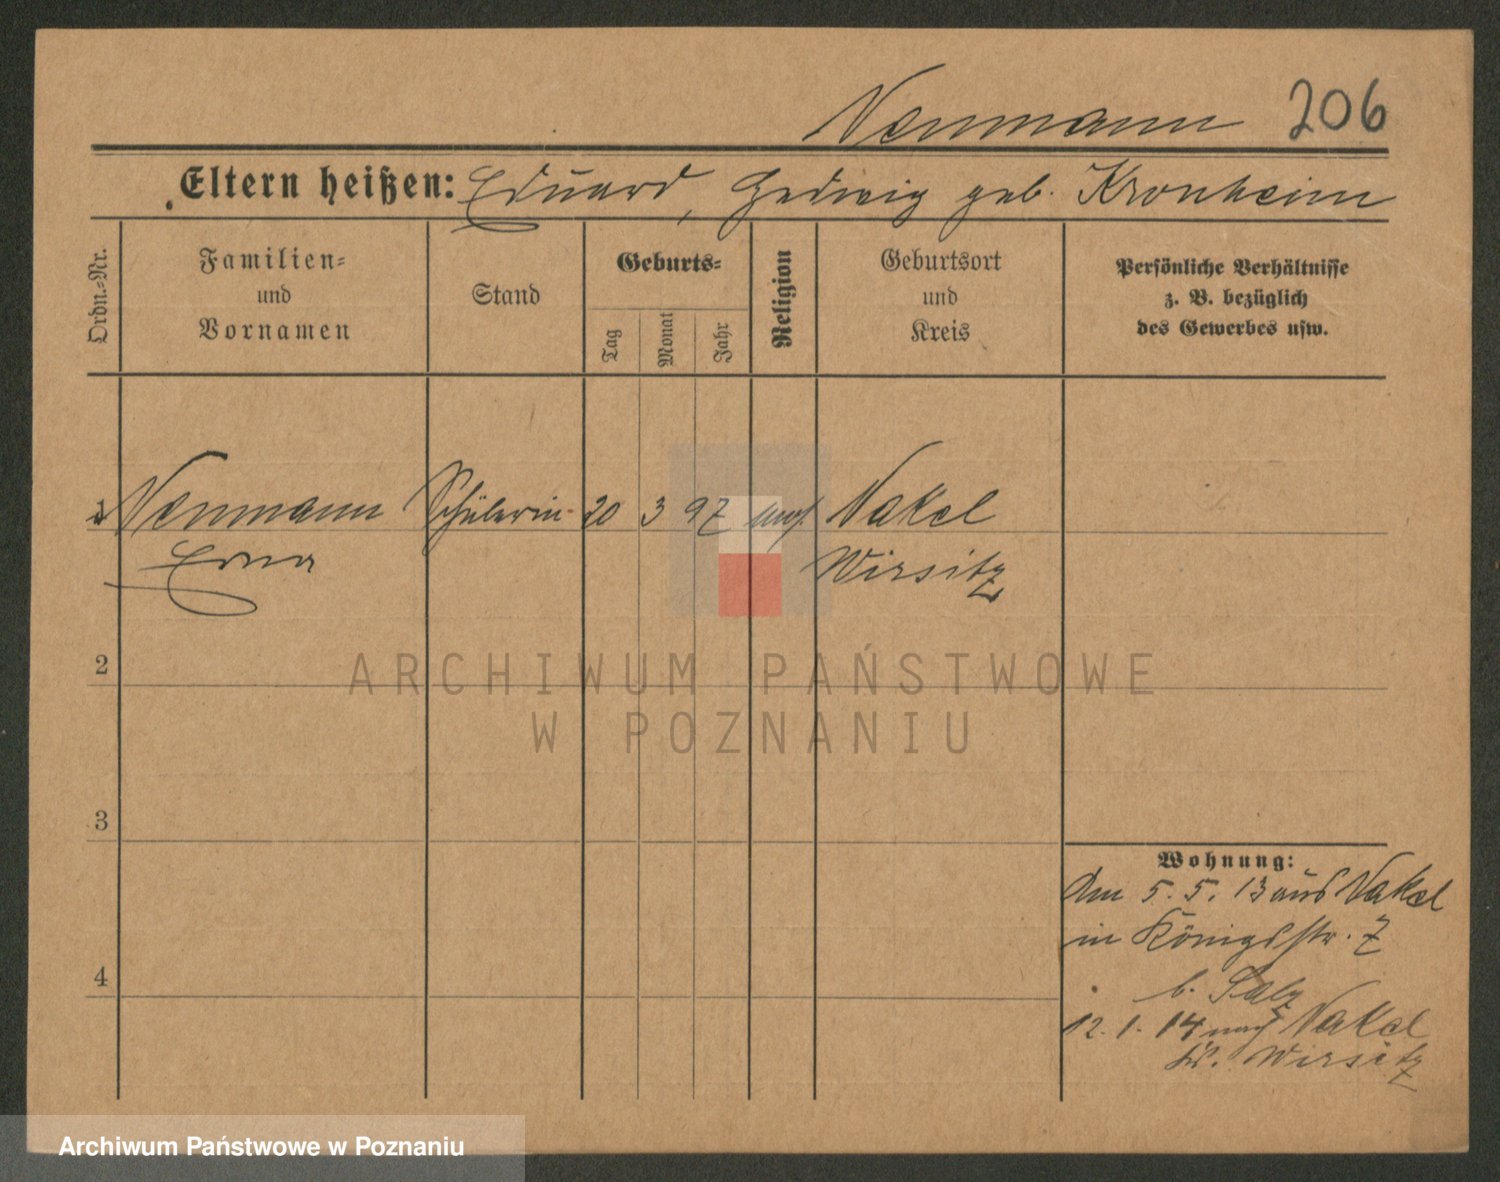 Neumann 206
Eltern heißen: Eduard, Hedwig geb. Kronheim
Ordn.-Nr.
Familien-
und
Vornamen
Stand
Geburts-
Tag
Monat
Jahr
Religion
Geburtsort
und
Kreis
Persönliche Verhältnisse
z. B. bezüglich
des Gewerbes usw.
1 Neumann Schülerin 20 3 97 Nakel
Erna Wirsitz
2
ARCHIWUM PAŃSTWOWE
W POZNANIU
3
Wohnung:
Am 5. 5. 13 aus Nakel
in Königsstr. 7
4
b. Salz
12. 1. 14 nach Nakel
Kr. Wirsitz
Archiwum Państwowe w Poznaniu